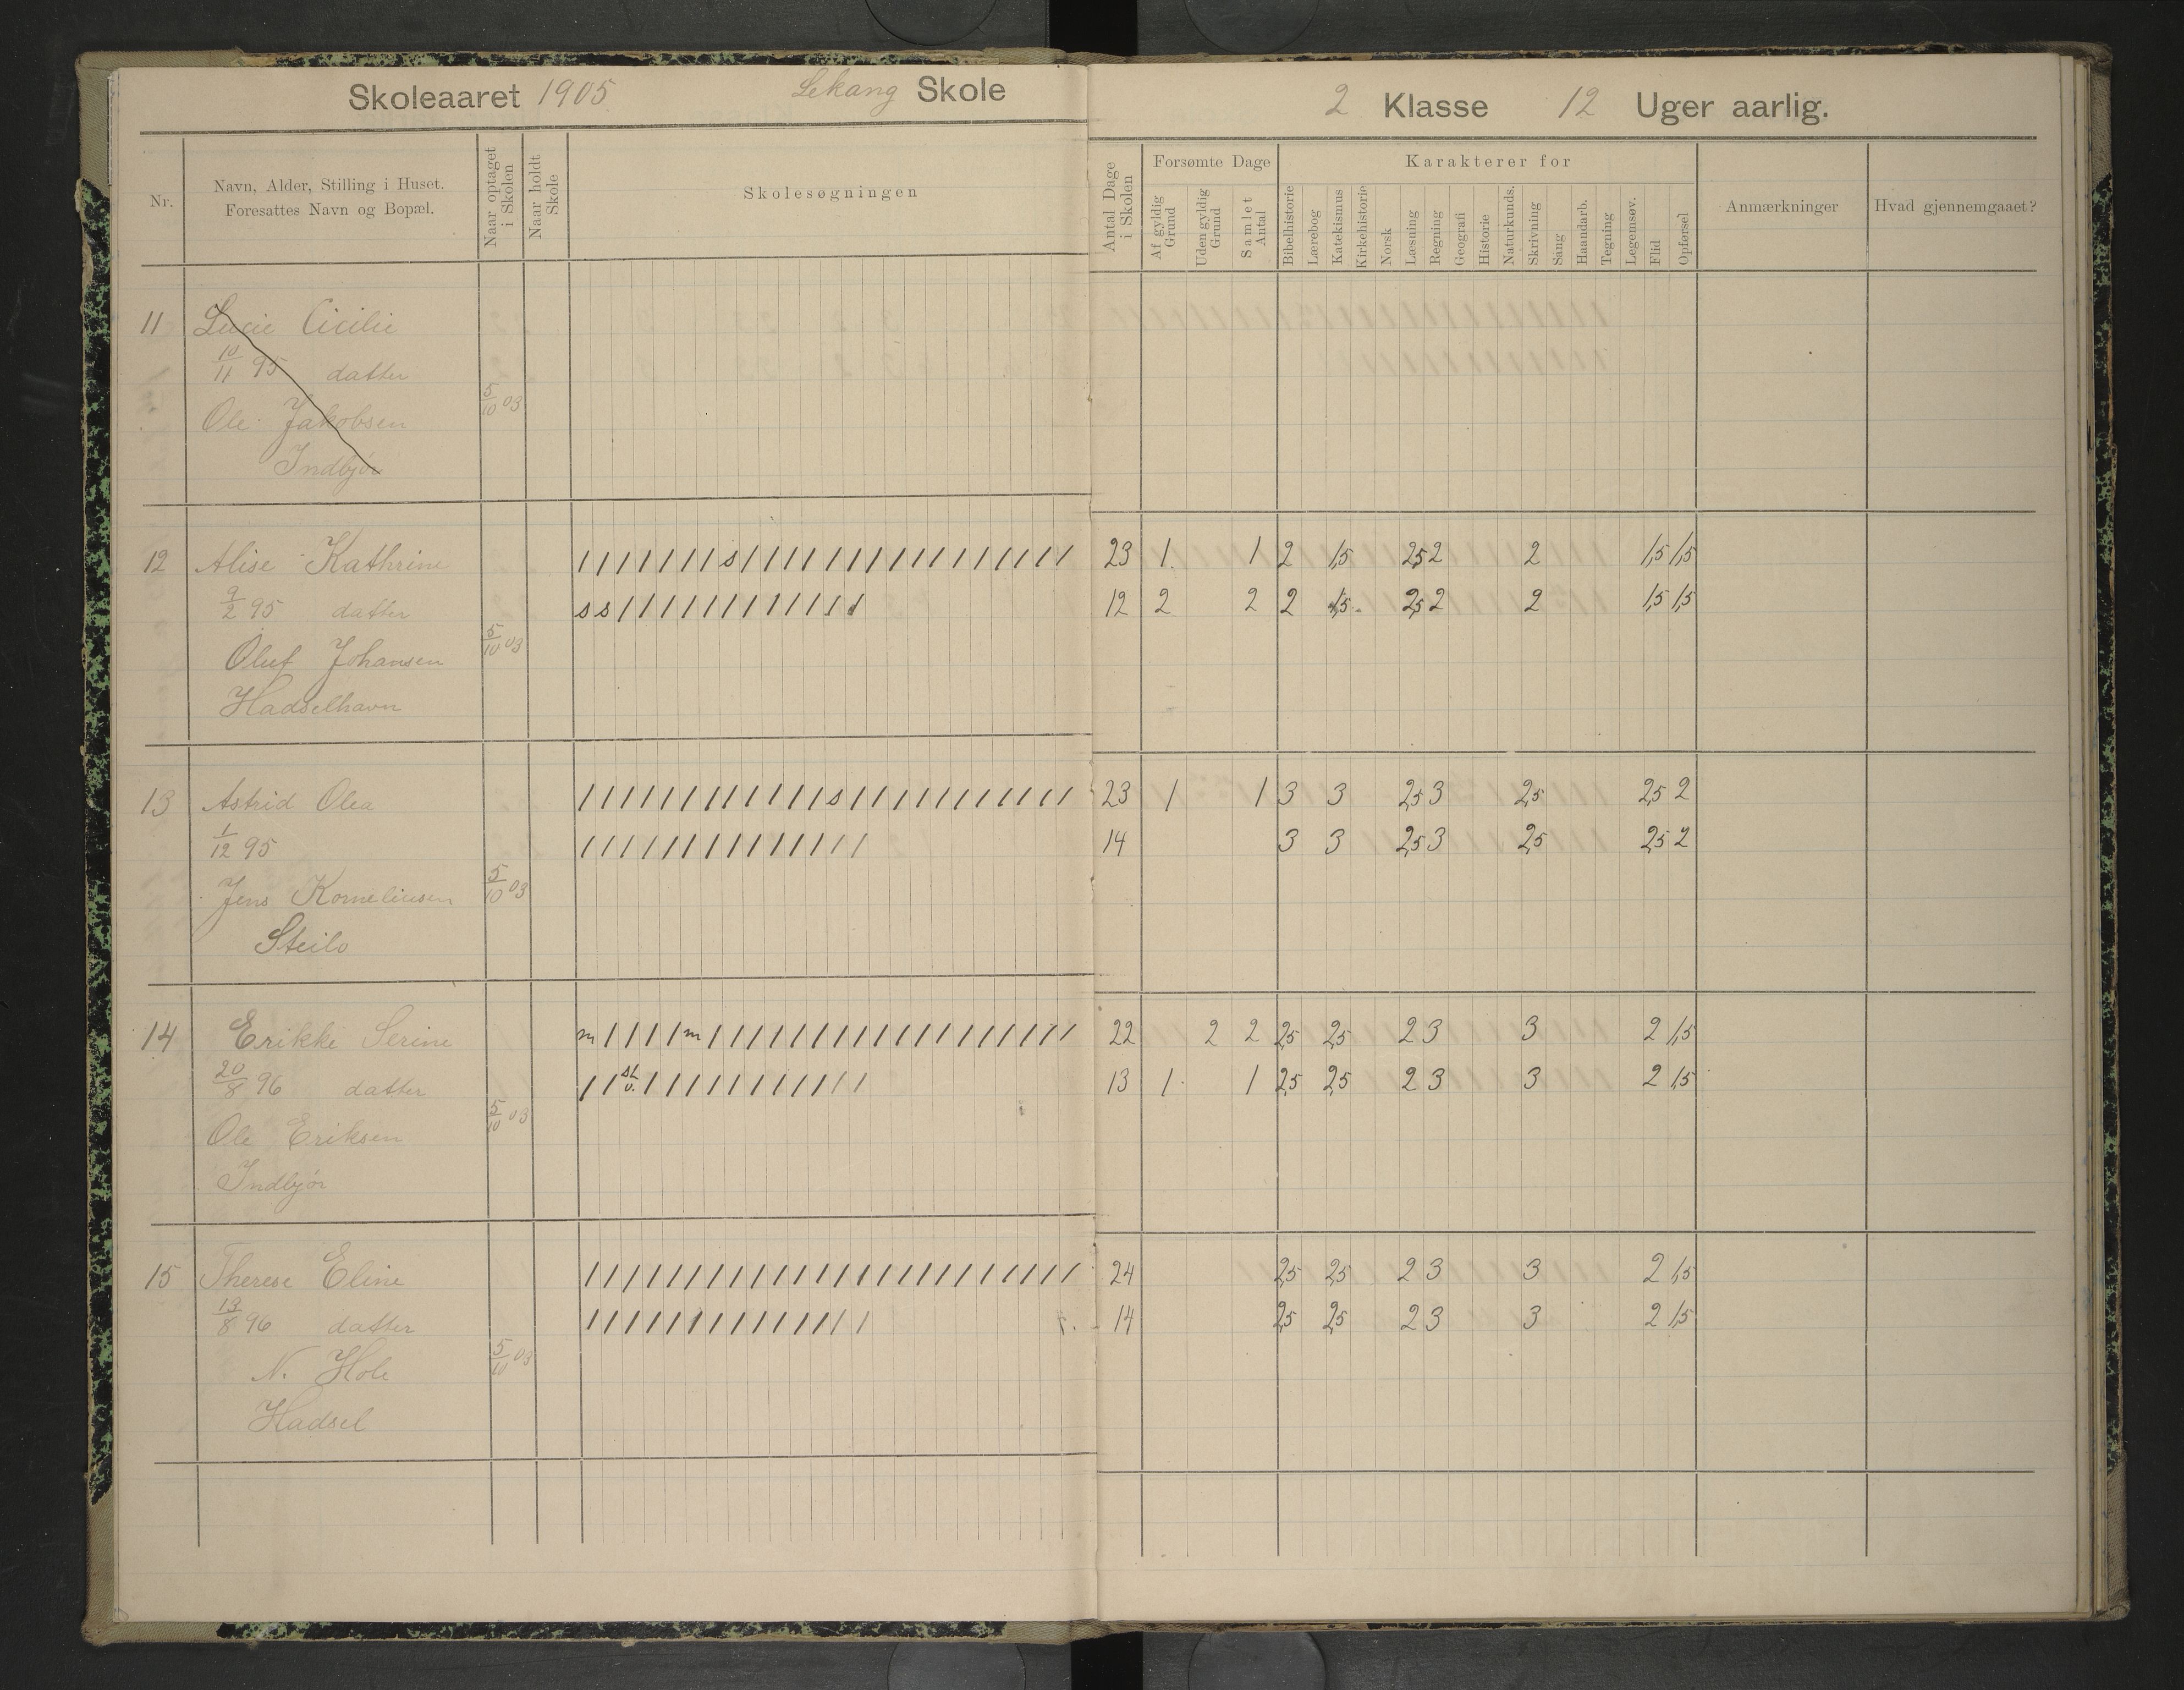 Skoleaaret 1905 Lekang Skole
2 Klasse 12 Uger aarlig.
Nr.
Navn, Alder, Stilling i Huset.
Foresattes Navn og Bopæl.
Naar optaget
i Skolen
Naar holdt
Skole
Skolesøgningen
Antal Dage
i Skolen
Forsømte Dage
Af gyldig
Grund
Uden gyldig
Grund
Samlet
Antal
Karakterer for
Bibelhistorie
Lærebog
Katekismus
Kirkehistorie
Norsk
Læsning
Regning
Geografi
Historie
Naturkunds.
Skrivning
Sang
Haandarb.
Tegning
Legemsøv.
Flid
Opførsel
Anmærkninger
Hvad gjennemgaaet?
11 Lucie Cicilie
10/11 95 datter
5/10 03
Ole Jakobsen
Indbjør
12 Alise Kathrine / / / / / / / s / / / / / / / / / / / / / / / / 23 1 1 2 1,5 2,5 2 2 1,5 1,5
9/2 95 datter s s / / / / / / / / / / / / 12 2 2 2 1,5 2,5 2 2 1,5 1,5
5/10 03
Oluf Johansen
Hadselhavn
13 Astrid Olea / / / / / / / / / / / / s / / / / / / / / / / / 23 1 1 3 3 2,5 3 2,5 2,5 2
1/12 95 / / / / / / / / / / / / / / 14 3 3 2,5 3 2,5 2,5 2
5/10 03
Jens Korneliusen
Steilo
14 Erikke Serine m / / / / m / / / / / / / / / / / / / / / / / / 22 2 2 2,5 2,5 2 3 3 2 1,5
20/8 96 datter / / st. v. / / / / / / / / / / / 13 1 1 2,5 2,5 2 3 3 2 1,5
5/10 03
Ole Eriksen
Indbjør
15 Therese Eline / / / / / / / / / / / / / / / / / / / / / / / / 24 2,5 2,5 2 3 3 2 1,5
13/8 96 datter / / / / / / / / / / / / / / 14 2,5 2,5 2 3 3 2 1,5
5/10 03
N. Hole
Hadsel